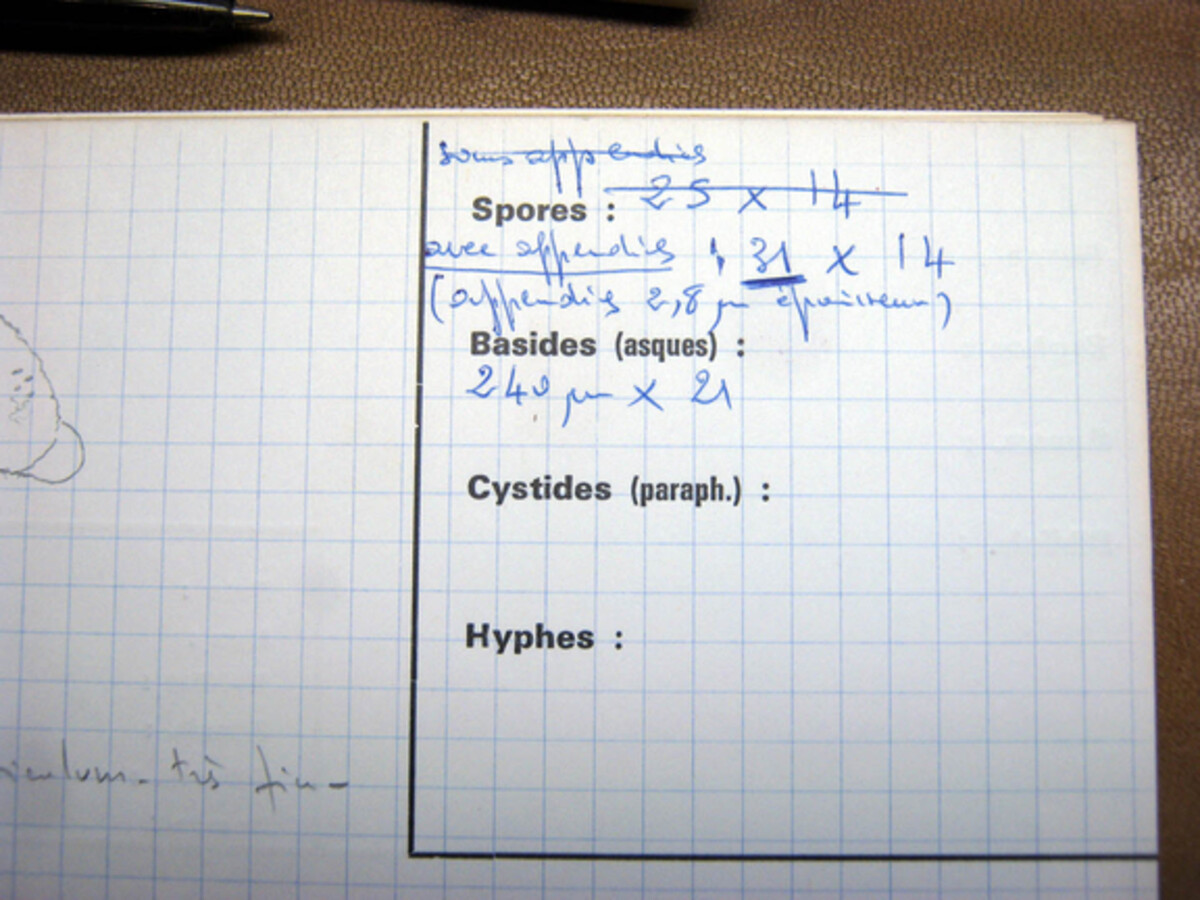 sans appendices
Spores : 25 x 14
avec appendices : 31 x 14
(appendices 2,8 µm épaisseur)
Basides (asques) :
240 µm x 21
Cystides (paraph.) :
Hyphes :
très fin-